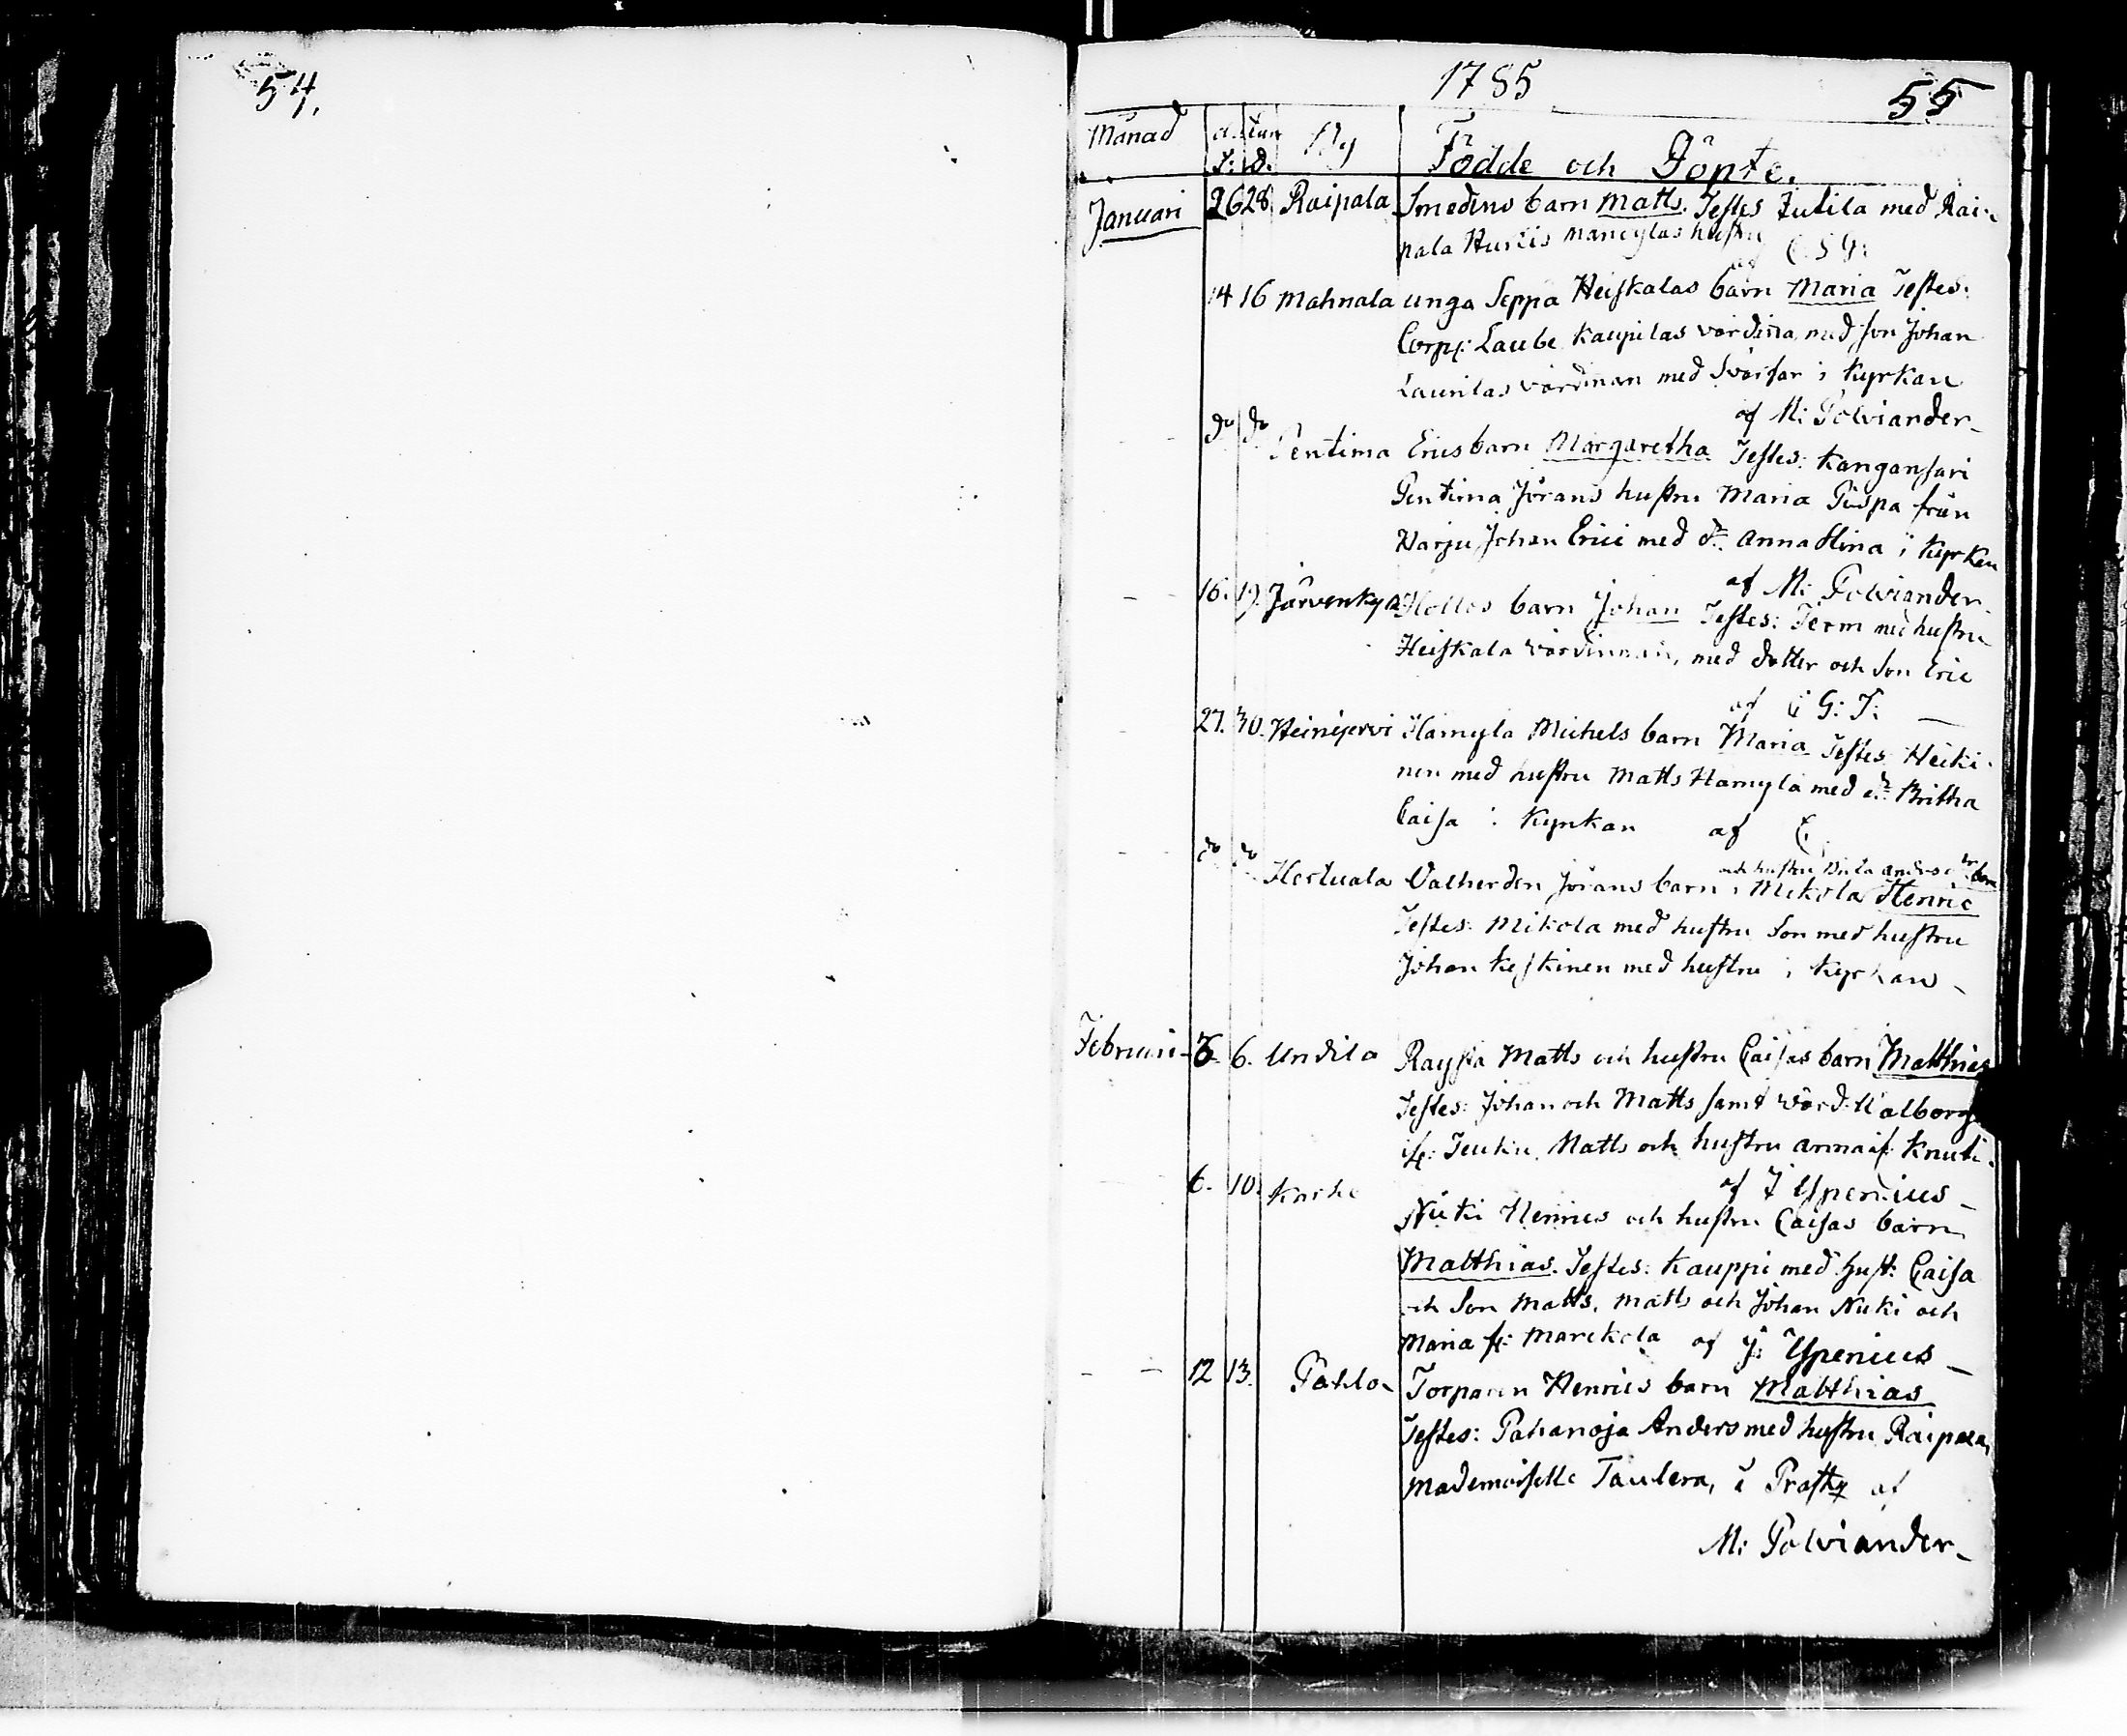 54.
1785
55
Månad datum By Födde och Döpte.
f: d.
Januari 26 28 Raipala Smedens barn Matts. Testes Jutila med Rai-
pala Hustis Mancylas hustru
af C. S G:
14 16 Mahnala unga Seppa Heiskalas barn Maria Testes:
Corpr: Laube Kaupilas värdina, med son Johan
Laurilas värdinan med Svärfar i Kyrkan
af M: Polviander
do do Pentima Erics barn Margaretha Testes: Kangansari
Pentima Jörans hustru Maria Pispa från
Harju, Johan Erici med dr: Anna Stina i Kyrkan
af M: Polviander
16. 19. Järvenkylä Hollos barn Johan Testes: Term med hustru
Heiskala värdinnan, med dotter och Son Eric
af C G: T:
27. 30. Heinijervi Hamyla Michels barn Maria Testes: Heiki-
nen med hustru Matts Hamyla med dr: Britha
Caisa i Kyrkan af C
och hustru
do do Hertuala Valherden Jörans barn i Mikola Henric
Testes: Mikola med hustru Son med hustru
Johan Keskinen med hustru i Kyrkan
Februari 6. 6. Undila Matts och hustru Caisas barn Matthias
Testes: Johan och Matts samt värd: Valborg
Matts och hustru Knuti
af J Ypenius
6. 10. Niuki Henrics och hustru Caisas barn
Matthias. Testes: Kauppi med Hust: Caisa
och Son Matts, Matts och Johan Niuki och
Maria Marckola af J: Ypenius
12 13. Pohlo Torparen Henrics barn Matthias
Testes: Pahanoja Anders med hustru Raipala,
Mademoiselle Taulera, i Prästg af
M: Polviander